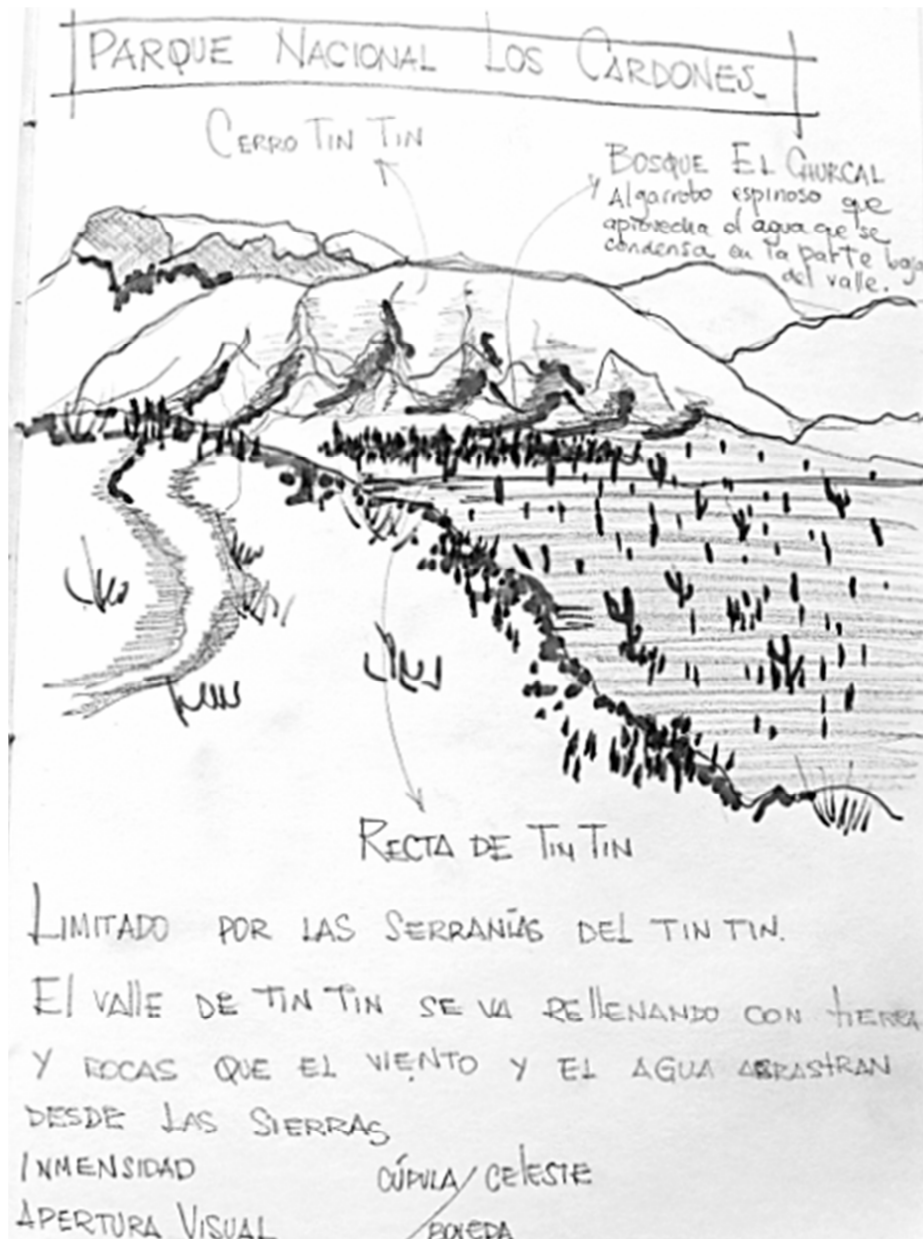 PARQUE NACIONAL LOS CARDONES
CERRO TIN TIN
BOSQUE EL CHURCAL
Algarrobo espinoso que
aprovecha el agua qe se
condensa en la parte baja
del valle.
RECTA DE TIN TIN
LIMITADO POR LAS SERRANÍAS DEL TIN TIN.
El VALLE DE TIN TIN SE VA RELLENANDO CON tIERRA
Y ROCAS QUE EL VIENTO Y EL AGUA ARRASTRAN
DESDE LAS SIERRAS
INMENSIDAD CÚPULA / CELESTE
APERTURA VISUAL BOVEDA